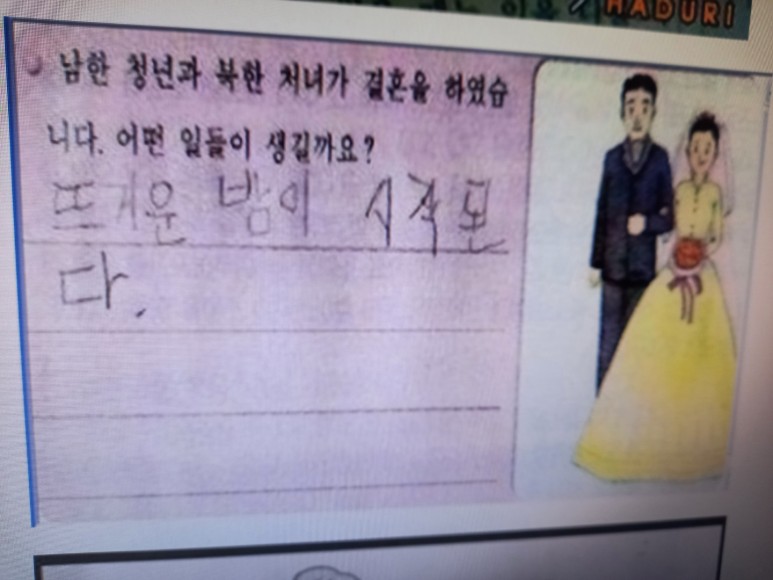 HADURI
남한 청년과 북한 처녀가 결혼을 하였습
니다. 어떤 일들이 생길까요?
뜨거운 밤이 시작된
다.